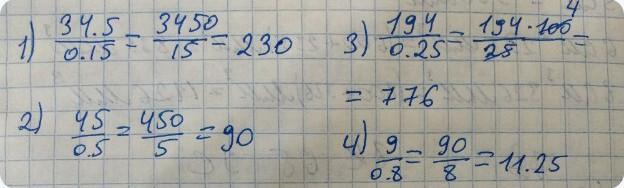 1) 34.5/0.15 = 3450/15 = 230
2) 45/0.5 = 450/5 = 90
3) 194/0.25 = 194·100/25 =
4
= 776
4) 9/0.8 = 90/8 = 11.25